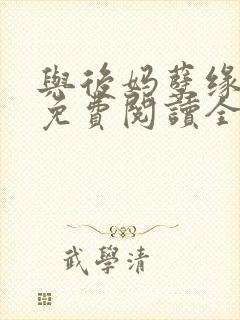 與後妈孽缘
免費閱讀全
武學清